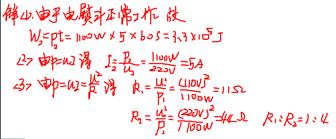 解(1)由于电熨斗正常工作 故
W=Pt=1100W×5×60S=3.3×10⁵J
(2)由P=UI得 I₂=P₂/U₂=1100W/220V=5A
(3)由P=UI=U²/R得 R₁=U₁²/P₁=(110V)²/1100W=11Ω
R₂=U₂²/P₂=(220V)²/1100W=44Ω R₁:R₂=1:4